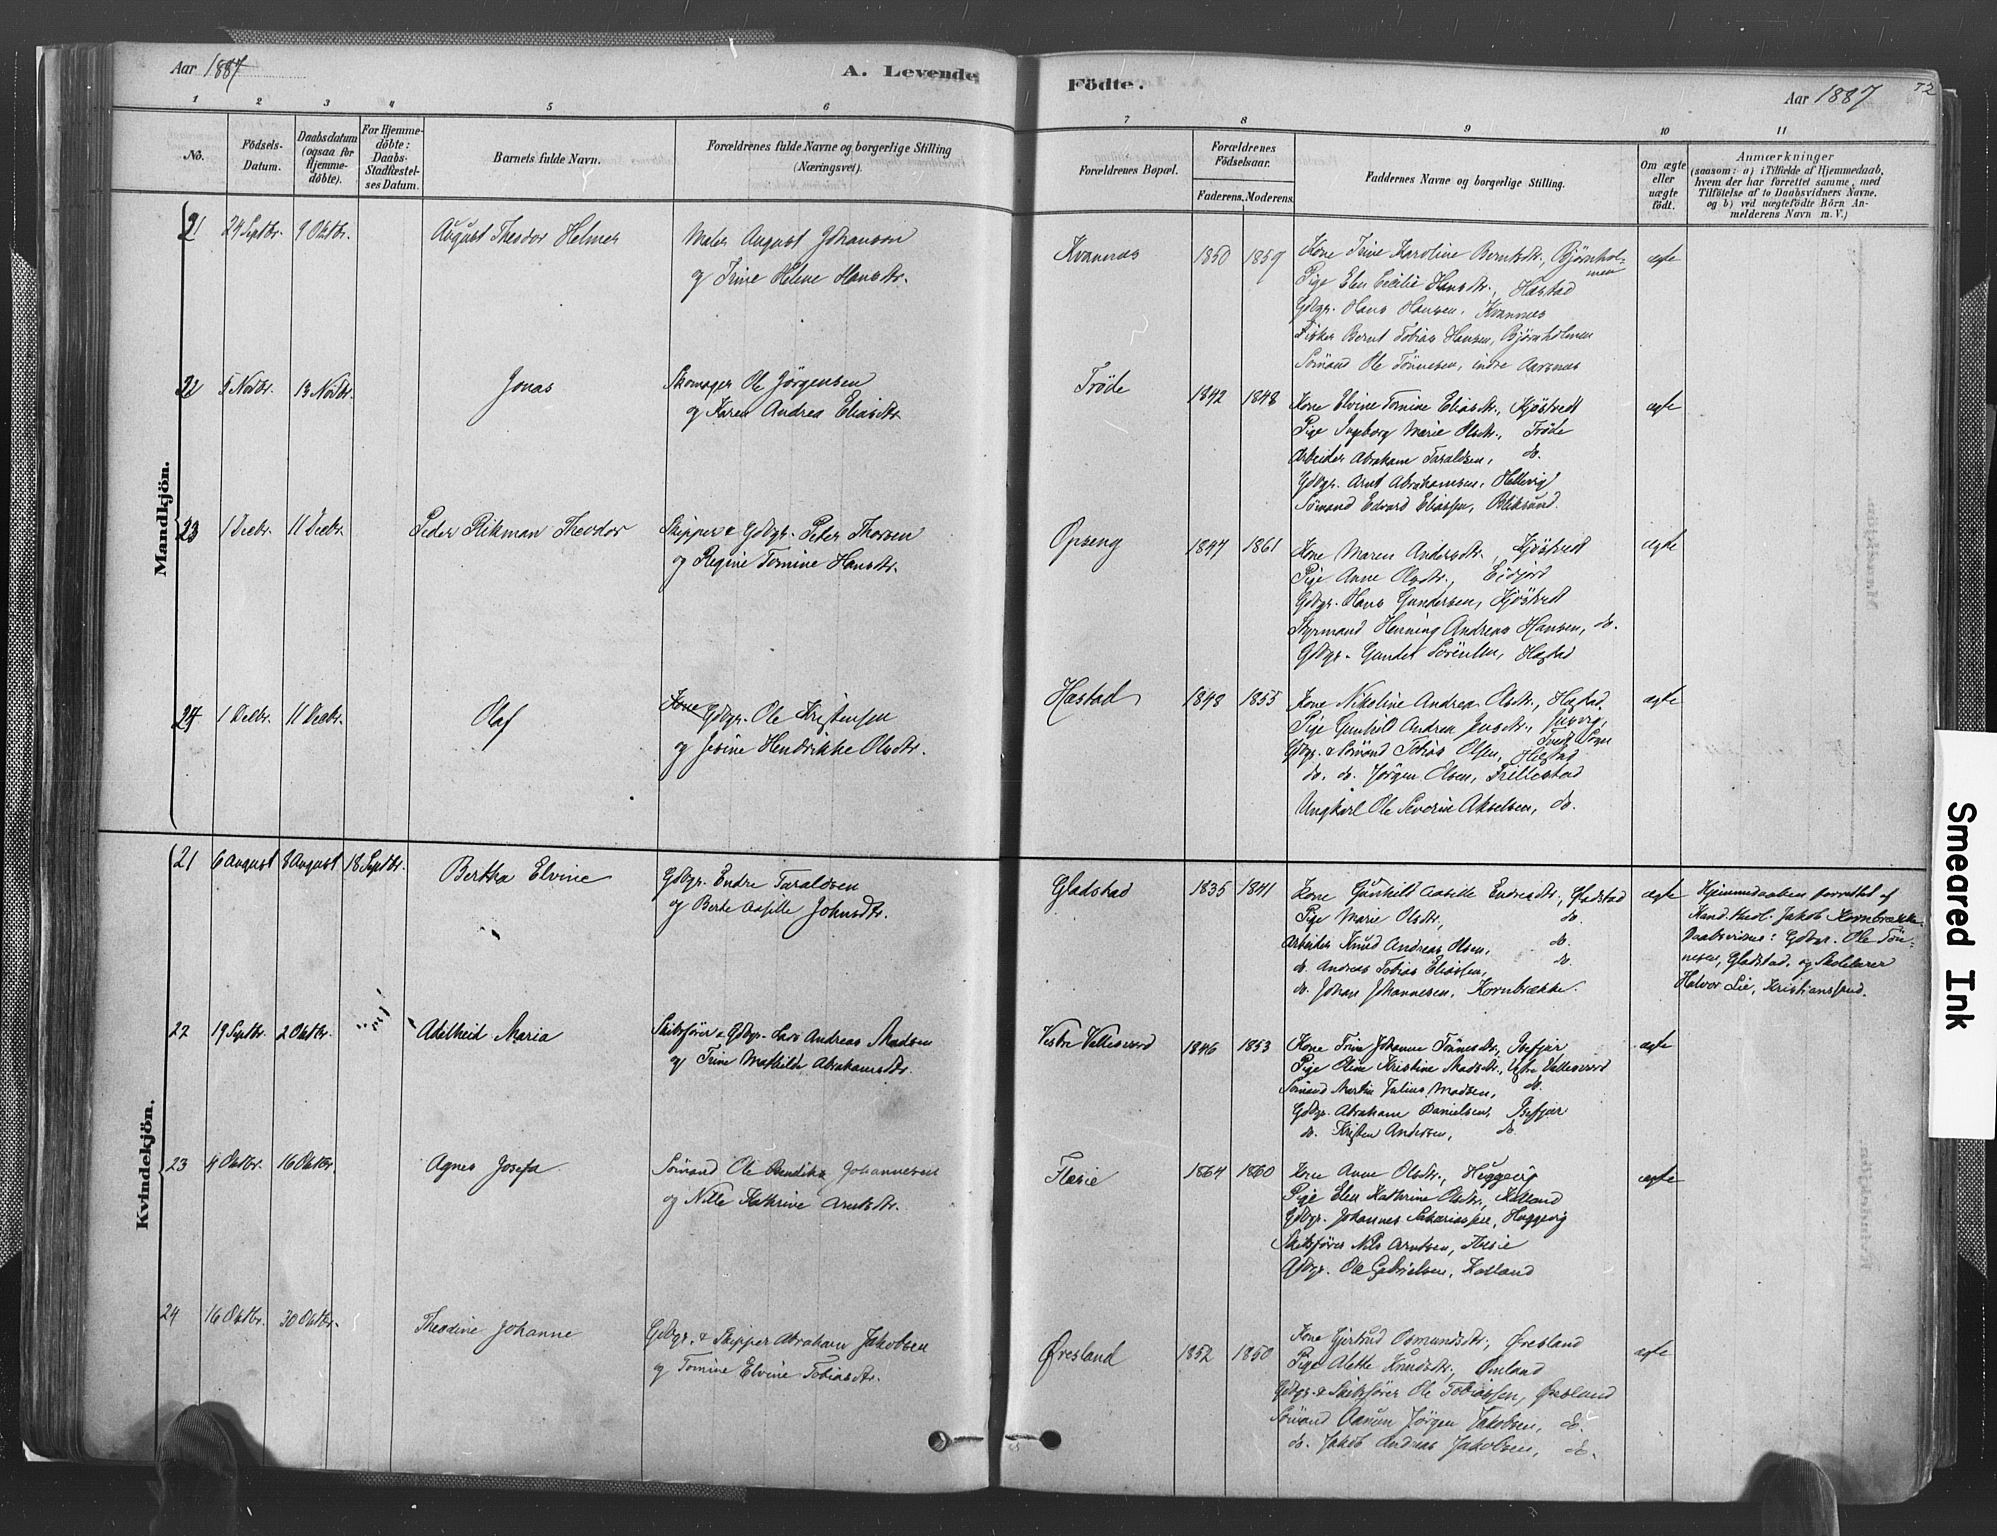 Aar 1887
A. Levende
Födte.
Aar 1887
72
1 2 3 4 5 6 7 8 9 10 11
No.
Födsels-
Datum.
Daabsdatum
(ogsaa for
Hjemme-
döbte).
For Hjemme-
döbte:
Daabs-
Stadfæstel-
ses Datum.
Barnets fulde Navn.
Forældrenes fulde Navne og borgerlige Stilling
(Næringsvei).
Forældrenes Bopæl.
Forældrenes
Födselsaar.
Faderens. Moderens.
Faddernes Navne og borgerlige Stilling.
Om ægte
eller
uægte
födt.
Anmærkninger
(saasom: a) i Tilfælde af Hjemmedaab,
hvem der har forrettet samme, med
Tilföielse af to Daabsvidners Navne.
og b) ved uægtefödte Börn An-
melderens Navn m. V.)
Mandkjön.
21 24 Septbr. 9 Oktbr. August Theodor Helmer
Maler August Johanson
og Trine Helene Hansdtr.
Kvannes 1850 1859
Kone Trine Karoline Berntsdtr., Bjørnhol-
men
Pige Elen Cecilie Hansdtr., Hæstad
Gdbgr. Hans Hansen, Kvannes
Fisker Bernt Tobias Hansen, Bjørnholmen
Sømand Ole Tønnesen, indre Aarsnes
ægte
22 5 Novbr. 13 Novbr. Jonas
Skomager Ole Jørgensen
og Karen Andrea Eliasdtr.
Trøde 1842 1848
Kone Elvine Tomine Eliasdtr., Kjøstvedt
Pige Ingeborg Marie Olsdtr., Trøde
Arbeider Abraham Taraldsen, do.
Gdbgr. Arnt Abrahamsen, Hellevig
Sømand Edvard Eliassen, Bliksund.
ægte
23 1 Decbr. 11 Decbr. Peder Rikman Theodor
Skipper & Gdbgr. Peder Thorsen
og Regine Tomine Hansdtr.
Opseng 1847 1861
Kone Maren Andersdtr., Kjøstvedt
Pige Anne Olsdtr., Eidjord
Gdbgr. Hans Gundersen, Kjøstvedt
Styrmand Henning Andreas Hansen, do.
Gdbgr. Gunder Sørensen, Hæstad
ægte
24 1 Decbr. 11 Decbr. Olaf
Kone Gdbgr. Ole Kristensen
og Jesine Hendrikke Olsdtr.
Hæstad 1848 1855
Kone Nikoline Andrea Olsdtr., Hæstad.
Pige Gunhild Andrea Jensdtr.,
Gdbgr. & Sømand Tobias Olsen, Hæstad
do. do. Jørgen Olsen, Trillestad
Ungkarl Ole Severin Akselsen, do.
ægte
Kvindekjön.
21 6 August 8 August 18 Septbr. Bertha Elvine
Gdbgr. Endre Taraldsen
og Berte Aasille Johnsdtr.
Gladstad 1835 1841
Kone Gunhild Aasille Endresdtr., Gladstad
Pige Marie Olsdtr., do.
Arbeider Knud Andreas Olsen, do.
do. Andreas Tobias Eliassen, do.
do. Johan Johannesen, Kornbrække.
ægte
Hjemmedaaben forrettet af
Kand. theol. Jakob Kornbrække
Daabsvidner: Gdbgr. Ole Tøn-
nesen, Gladstad, og Skolelærer
Halvor Lie, Kristianssund.
22 19 Septbr. 2 Oktbr. Adelheid Maria
Skibsfører & Gdbgr. Lars Andreas Madsen
og Trine Mathilde Abrahamsdtr.
Vestre Vallesverd 1846 1853
Kone Trine Johanne Tønnesdtr., Ibefjær
Pige Oline Kristine Madsdtr., Vestre Vallesverd
Sømand Martin Julius Madsen, do.
Gdbgr. Abraham Danielsen, Ibefjær
do. Kristen Andersen, do.
ægte
23 4 Oktbr. 16 Oktbr. Agnes Josefa
Sømand Ole Bendiks Johannesen
og Nille Kathrine Arntsdtr.
Flærie 1864 1860
Kone Anne Olsdtr., Huggevig
Pige Elen Kathrine Olsdtr., Kalland
Gdbgr. Johannes Sakariassen, Huggevig
Skibsfører Nils Arntsen, Flærie
Gdbgr. Ole Gabrielsen, Kalland
ægte
24 16 Oktbr. 30 Oktbr. Theodine Johanne
Gdbgr. & Skipper Abraham Jakobsen
og Tomine Elvine Tobiasdtr.
Øresland 1852 1850
Kone Gjertrud Osmundsdtr., Øresland
Pige Alette Knudsdtr., Omland
Gdbgr. & Skibsfører Ole Tobiassen, Øresland
Sømand Aanun Jørgen Jakobsen, do.
do. Jakob Andreas Jakobsen, do.
ægte
Smeared Ink